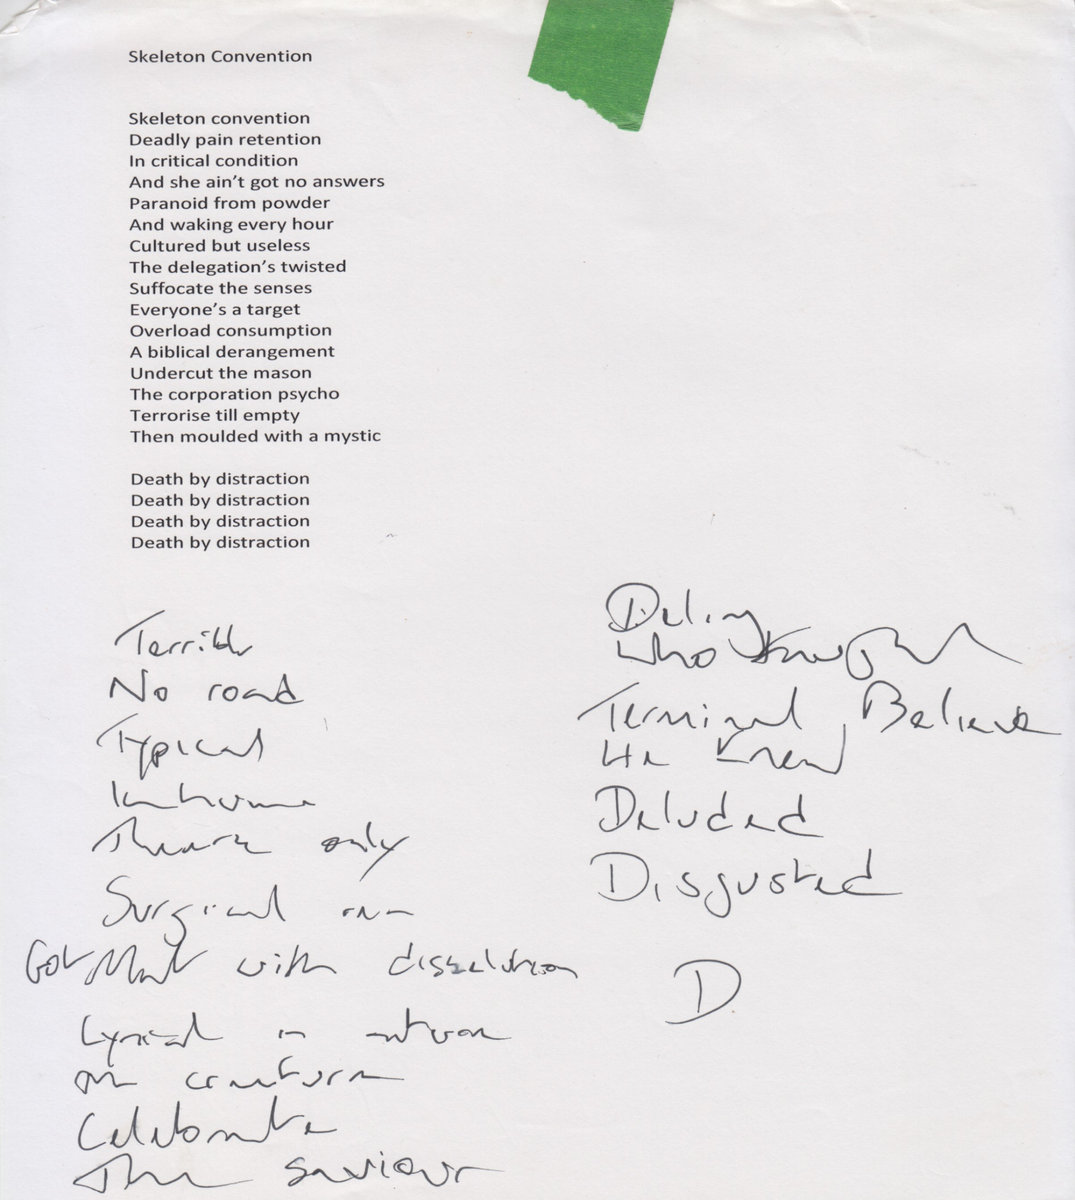 Skeleton Convention
Skeleton convention
Deadly pain retention
In critical condition
And she ain't got no answers
Paranoid from powder
And waking every hour
Cultured but useless
The delegation's twisted
Suffocate the senses
Everyone's a target
Overload consumption
A biblical derangement
Undercut the mason
The corporation psycho
Terrorise till empty
Then moulded with a mystic
Death by distraction
Death by distraction
Death by distraction
Death by distraction
Terrible
No road
Typical
only
Surgical
Got with dissolution
Lyrical in
creature
Celebrate
The saviour
Who
Terminal Believe
He knew
Deluded
Disgusted
D